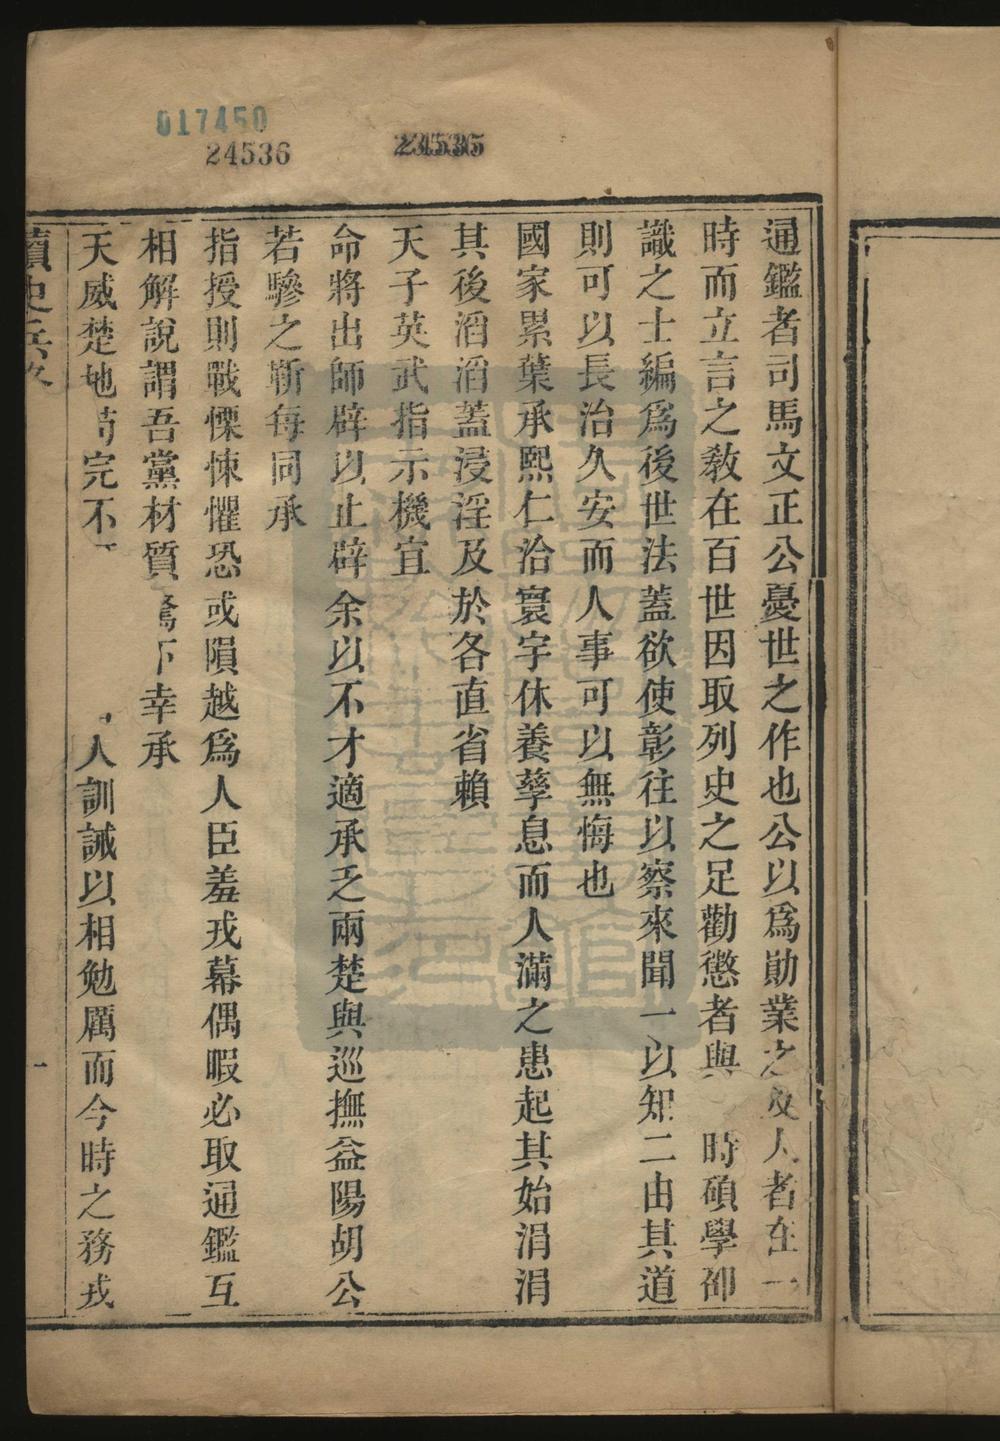 017450
24536
通鑑者司馬文正公憂世之作也公以爲勛業之及人者在一
時而立言之教在百世因取列史之足勸懲者與 時碩學卲
識之士編爲後世法蓋欲使彰往以察來聞一以知二由其道
則可以長治久安而人事可以無悔也
國家累葉承熙仁洽寰宇休養孳息而人滿之患起其始涓涓
其後滔滔蓋浸淫及於各直省賴
天子英武指示機宜
命將出師辟以止辟余以不才適承乏兩楚與巡撫益陽胡公
若驂之靳每同承
指授則戰慄悚懼恐或隕越爲人臣羞戎幕偶暇必取通鑑互
相解說謂吾黨材質駑下幸承
天威楚地苟完不 人訓誡以相勉厲而今時之務戎
讀史兵畧
一